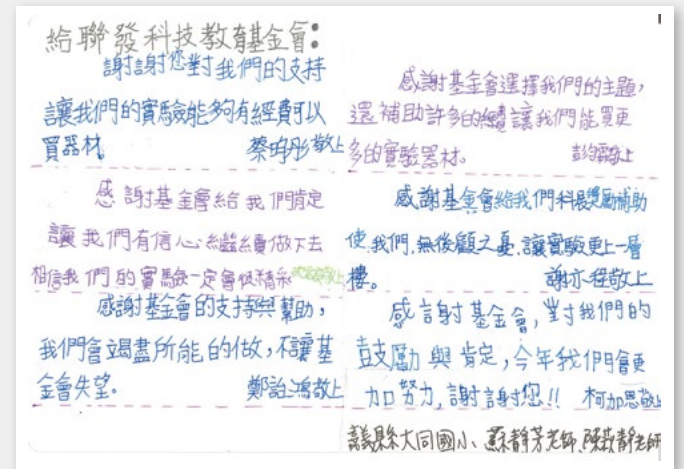 給聯發科技教育基金會:
謝謝您對我們的支持
讓我們的實驗能夠有經費可以
買器材。 蔡昀彤敬上
感謝基金會給我們肯定
讓我們有信心繼續做下去
相信我們的實驗一定會很精彩
感謝基金會的支持與幫助,
我們會竭盡所能的做,不讓基
金會失望。 鄭詒鴻敬上
感謝基金會選擇我們的主題,
還補助許多的錢讓我們能買更
多的實驗器材。 敬上
感謝基金會給我們科展獎勵補助
使我們,無後顧之憂,讓實驗更上一層
樓。 謝亦程敬上
感謝基金會,對我們的
鼓勵與肯定,今年我們會更
加努力,謝謝您!! 柯加恩敬上
嘉義縣大同國小、蘇靜芳老師 陳 靜老師